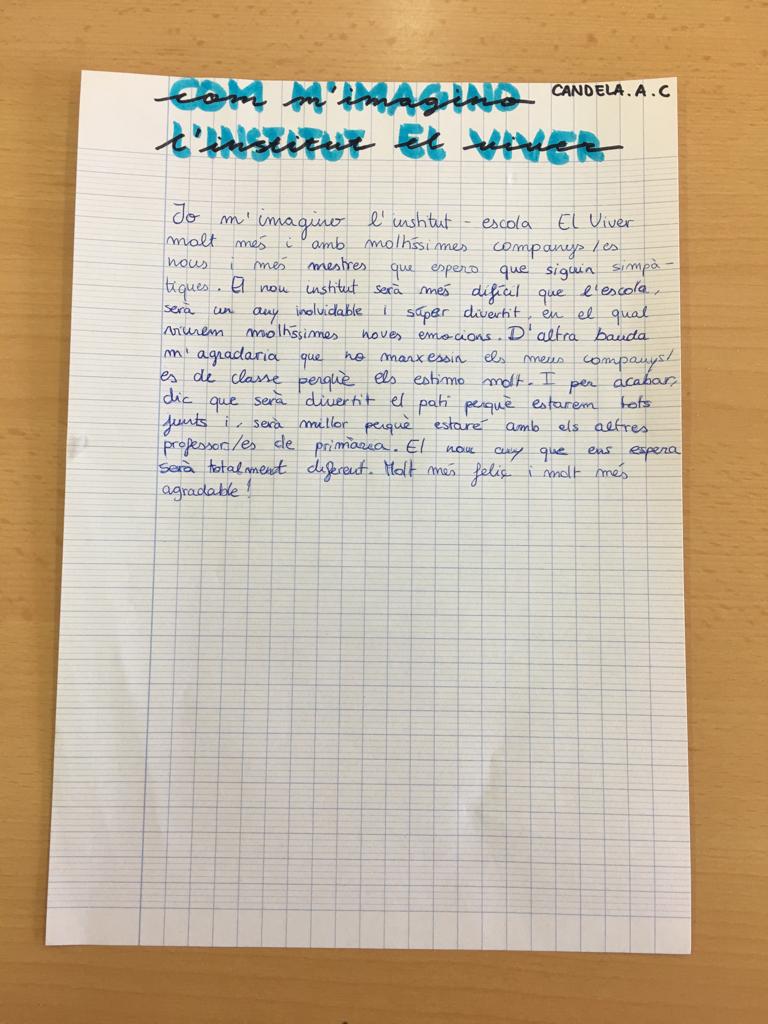 com m'imagino CANDELA.A.C
l'institut El viver
Jo m'imagino l'institut - escola El Viver
molt més i amb moltíssimes companys/es
nous i més mestres que espero que siguin simpà-
tiques. El nou institut serà més difícil que l'escola,
serà un any inolvidable i súper divertit, en el qual
viurem moltíssimes noves emocions. D'altra banda
m'agradaria que no marxessin els meus companys/
es de classe perquè els estimo molt. I per acabar,
dic que serà divertit el pati perquè estarem tots
junts i, serà millor perquè estaré amb els altres
professor/es de primària. El nou any que ens espera
serà totalment diferent. Molt més feliç i molt més
agradable!